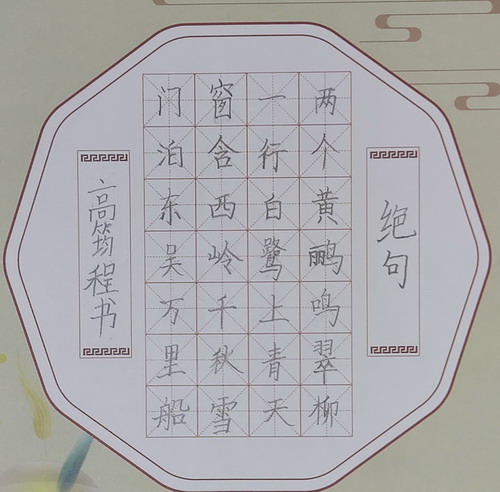 绝句
两个黄鹂鸣翠柳
一行白鹭上青天
窗含西岭千秋雪
门泊东吴万里船
高筠程书